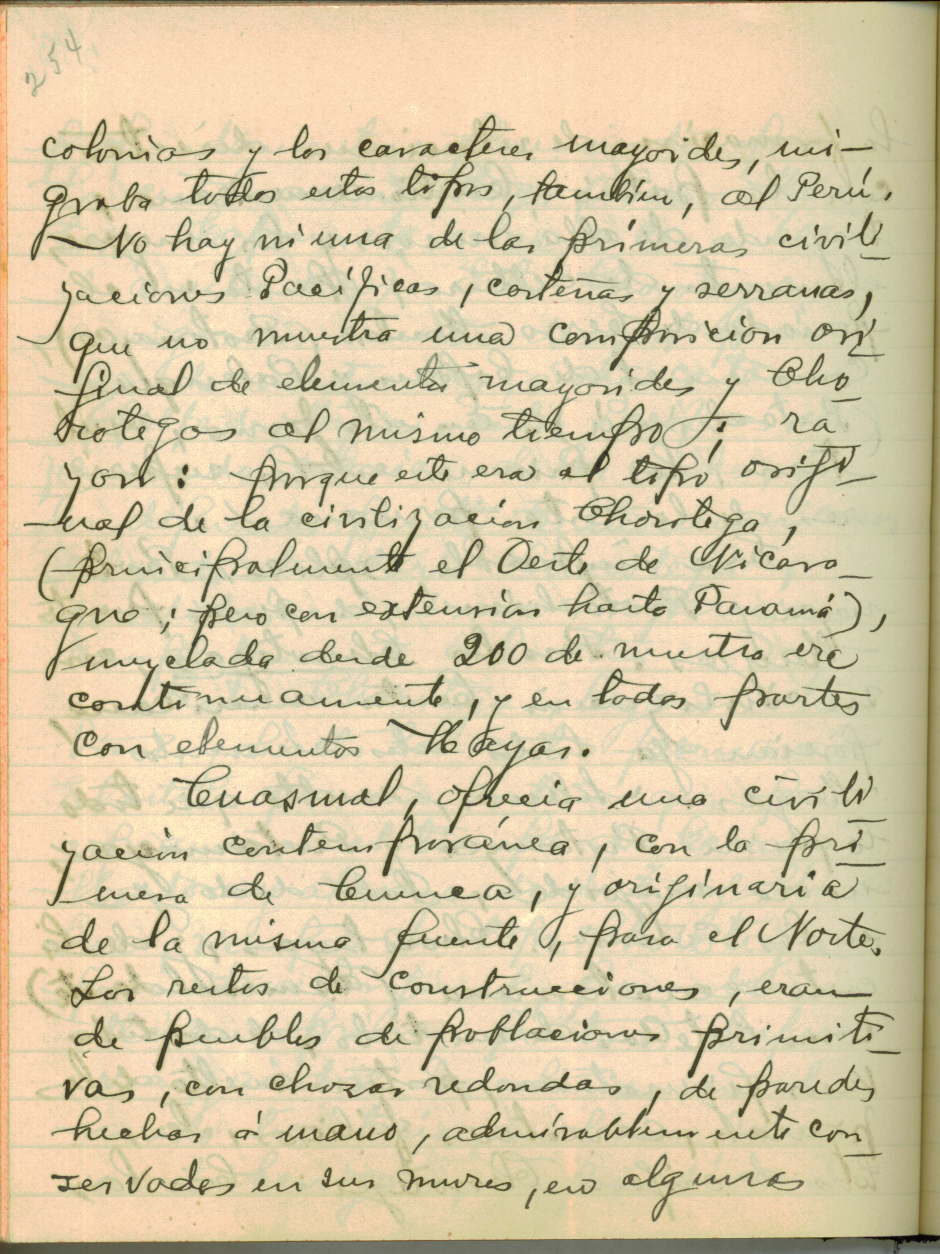 254
colonias y los caracteres mayoides, mi-
graba todos estos tipos, tambien, al Perú.
No hay ni una de las primeras civili
zaciones Pacíficas, costeñas y serranas,
que no muestra una composicion ori
ginal de elementos mayoides y Cho
rotegas al mismo tiempo; ra
zon: porque este era el tipo origi
nal de la civilización Chorotega,
(principalmente el Oeste de Nicara
gua; pero con extension hasta Panamá),
mezclada desde 200 de nuestra era
continuamente, y en todas partes
con elementos Mayas.
Cuasmal, ofrecia una civili
zación contemporánea, con la pri
mera de Cuenca, y originaria
de la misma fuente, para el Norte.
Los restos de construcciones, eran
de pueblos de poblaciones primiti
vas, con chozas redondas, de paredes
hechas á mano, admirablemente con
servadas en sus muros, en algunas